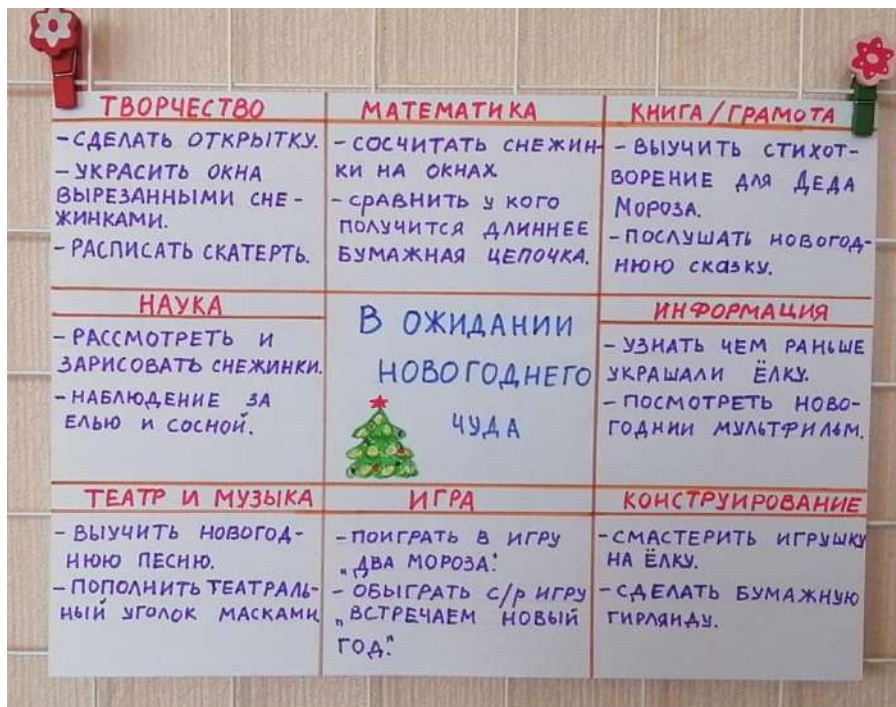 ТВОРЧЕСТВО
– СДЕЛАТЬ ОТКРЫТКУ.
– УКРАСИТЬ ОКНА
ВЫРЕЗАННЫМИ СНЕ-
ЖИНКАМИ.
– РАСПИСАТЬ СКАТЕРТЬ.
МАТЕМАТИКА
– СОСЧИТАТЬ СНЕЖИН-
КИ НА ОКНАХ
– СРАВНИТЬ У КОГО
ПОЛУЧИТСЯ ДЛИННЕЕ
БУМАЖНАЯ ЦЕПОЧКА.
КНИГА/ГРАМОТА
– ВЫУЧИТЬ СТИХОТ-
ВОРЕНИЕ ДЛЯ ДЕДА
МОРОЗА.
– ПОСЛУШАТЬ НОВОГОД-
НЮЮ СКАЗКУ.
НАУКА
– РАССМОТРЕТЬ И
ЗАРИСОВАТЬ СНЕЖИНКИ.
– НАБЛЮДЕНИЕ ЗА
ЕЛЬЮ И СОСНОЙ.
В ОЖИДАНИИ
НОВОГОДНЕГО
ЧУДА
ИНФОРМАЦИЯ
– УЗНАТЬ ЧЕМ РАНЬШЕ
УКРАШАЛИ ЁЛКУ.
– ПОСМОТРЕТЬ НОВО-
ГОДНИИ МУЛЬТФИЛЬМ.
ТЕАТР И МУЗЫКА
– ВЫУЧИТЬ НОВОГОД-
НЮЮ ПЕСНЮ.
– ПОПОЛНИТЬ ТЕАТРАЛЬ-
НЫЙ УГОЛОК МАСКАМИ
ИГРА
– ПОИГРАТЬ В ИГРУ
„ДВА МОРОЗА".
– ОБЫГРАТЬ С/Р ИГРУ
„ВСТРЕЧАЕМ НОВЫЙ
ГОД."
КОНСТРУИРОВАНИЕ
– СМАСТЕРИТЬ ИГРУШКУ
НА ЁЛКУ.
– СДЕЛАТЬ БУМАЖНУЮ
ГИРЛЯНДУ.